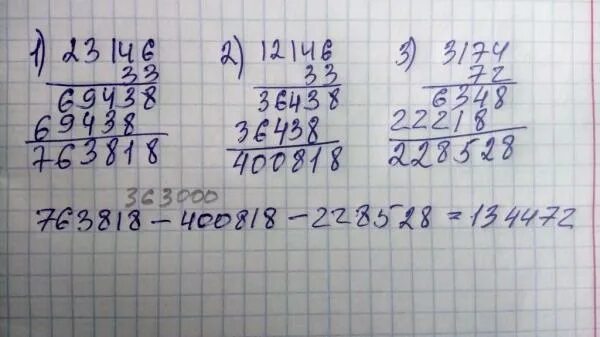 1) 23146
33
69438
69438
763818
2) 12146
33
36438
36438
400818
3) 3174
72
6348
22218
228528
363000
763818 - 400818 - 228528 = 134472